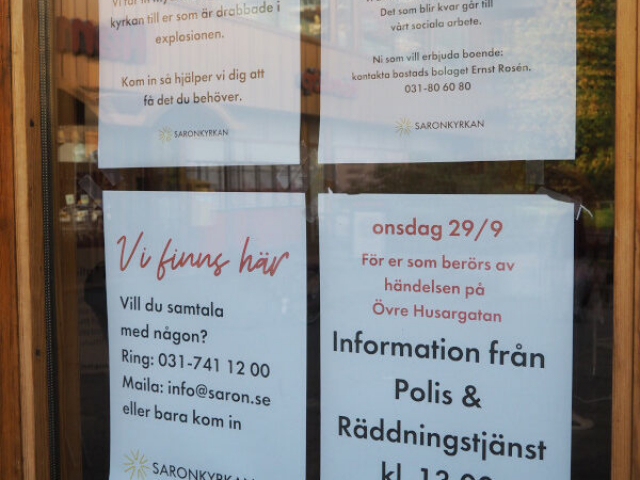 kyrkan till er som är drabbade i
explosionen.
Kom in så hjälper vi dig att
få det du behöver.
SARONKYRKAN
Det som blir kvar går till
vårt sociala arbete.
Ni som vill erbjuda boende:
kontakta bostads bolaget Ernst Rosén.
031-80 60 80
SARONKYRKAN
Vi finns här
Vill du samtala
med någon?
Ring: 031-741 12 00
Maila: info@saron.se
eller bara kom in
SARONKYRKAN
onsdag 29/9
För er som berörs av
händelsen på
Övre Husargatan
Information från
Polis &
Räddningstjänst
kl. 13.00